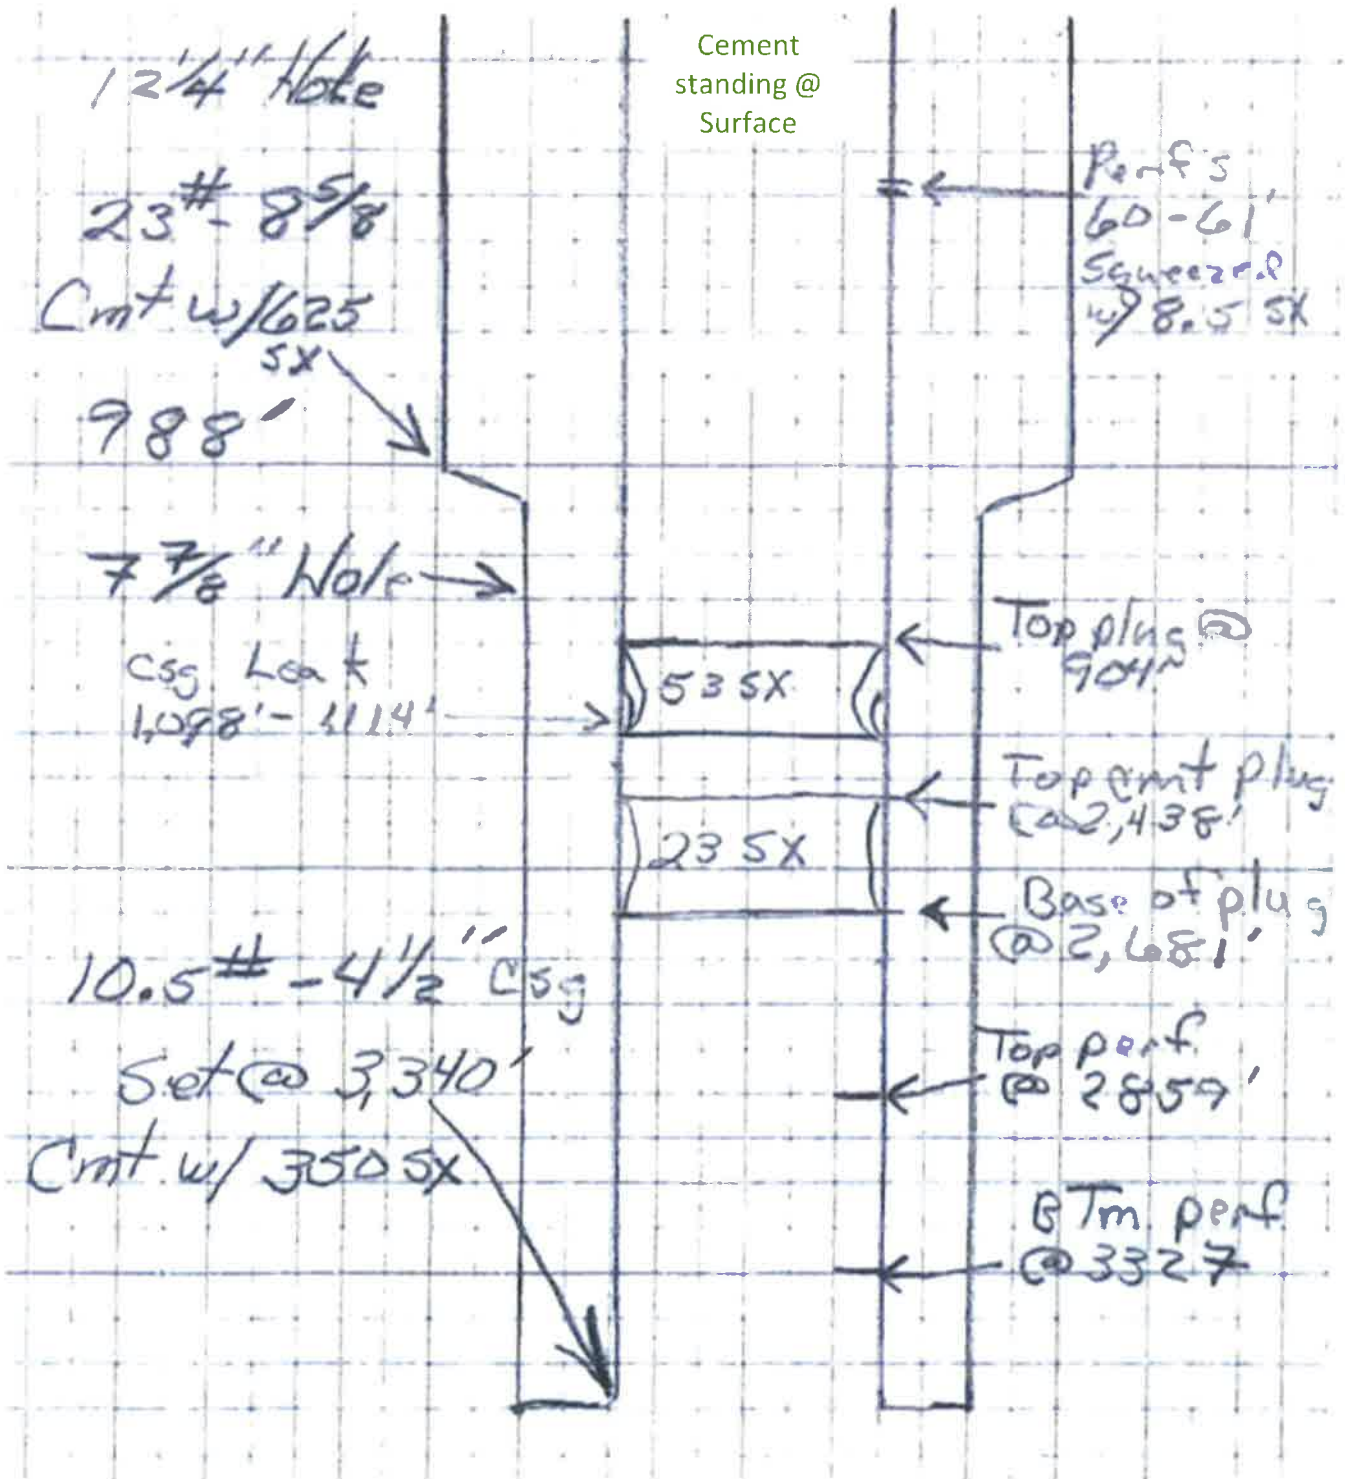 12 1/4" Hole
23# - 8 5/8
Cmt w/625
sx
988'
7 7/8" Hole
Csg Leak
1,098' - 1114'
10.5# - 4 1/2" Csg
Set @ 3,340'
Cmt w/ 350 sx
Cement
standing @
Surface
53 sx
23 sx
Perfs
60-61'
Squeezed
w/ 8.5 sx
Top plug @
904'
Top cmt plug
@ 2,438'
Base of plug
@ 2,681'
Top perf
@ 2859'
BTm perf
@ 3327